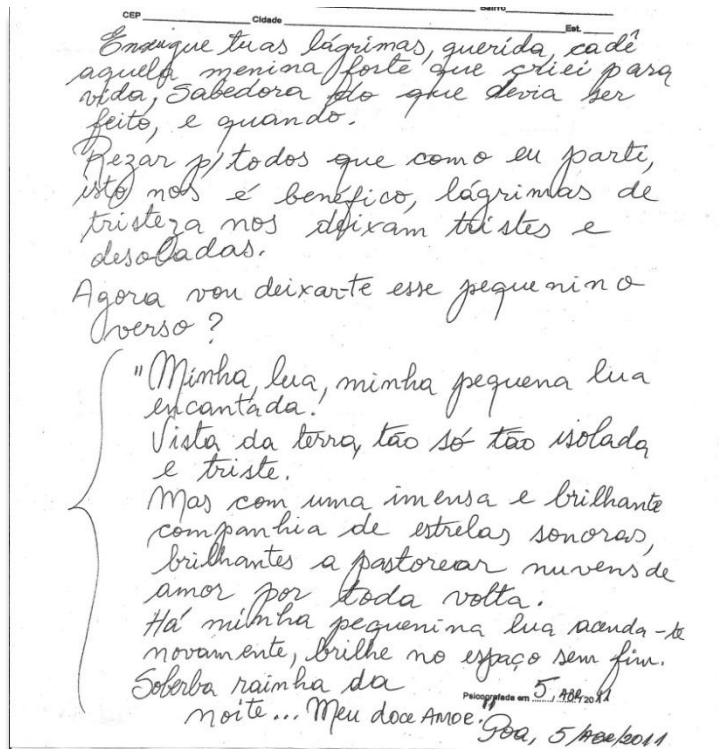 CEP Cidade Bairro Est.
Enxugue tuas lágrimas, querida, cadê
aquela menina forte que criei para
vida, Sabedora do que devia ser
feito, e quando.
Rezar p/ todos que como eu parti,
isto nos é benéfico, lágrimas de
tristeza nos deixam tristes e
desoladas.
Agora vou deixar-te esse pequenino
verso?
"Minha, lua, minha pequena lua
encantada!
Vista da terra, tão só tão isolada
e triste.
Mas com uma imensa e brilhante
companhia de estrelas sonoras,
brilhantes a pastorear nuvens de
amor por toda volta.
Há minha pequenina lua acenda-te
novamente, brilhe no espaço sem fim.
Soberba rainha da
noite... Meu doce Amor."
Psicografada em 5, ABR, 2011
5/ABR/2011